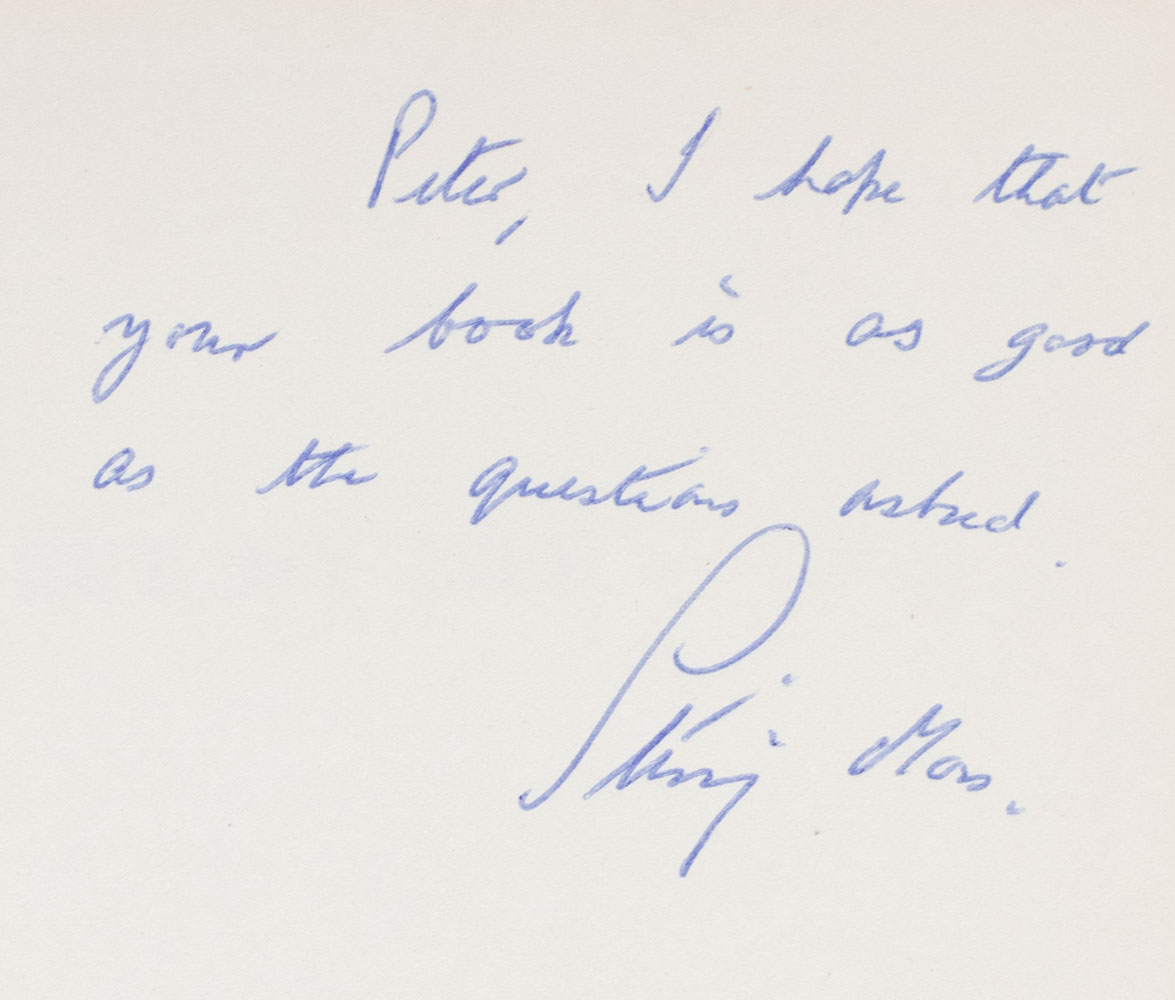 Peter, I hope that
your book is as good
as the questions asked.
Stirling Moss.